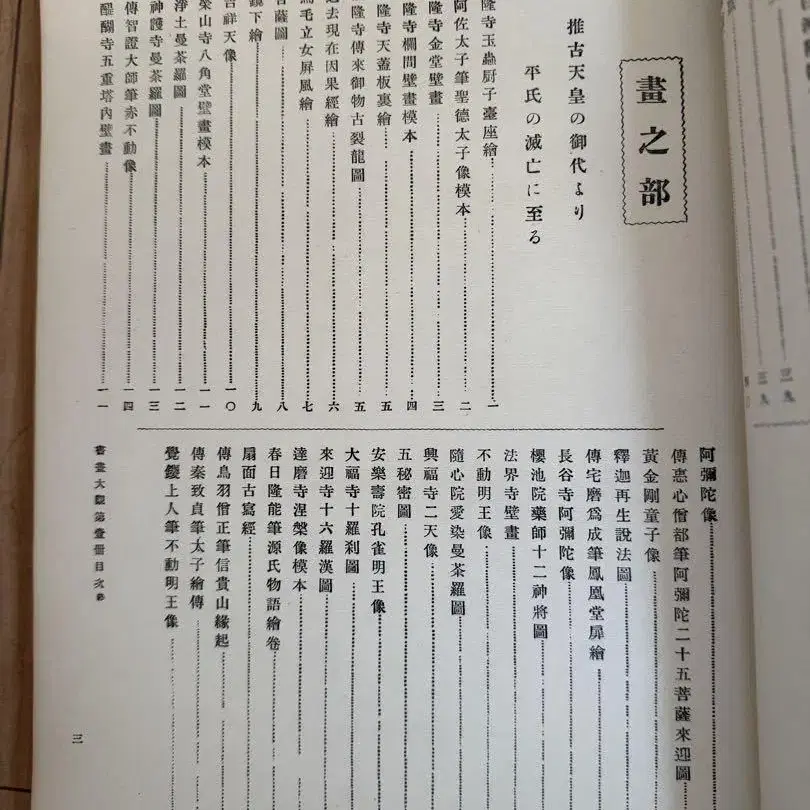 畫之部
推古天皇の御代より
平氏の滅亡に至る
隆寺玉蟲厨子臺座繪 一
阿佐太子筆聖德太子像模本 二
隆寺金堂壁畫 三
隆寺欄間壁畫模本 四
隆寺天蓋板裏繪 五
隆寺傳來御物古裂龍圖 五
去現在因果經繪 六
毛立女屏風繪 七
菩薩圖 八
下繪 九
吉祥天像 一〇
榮山寺八角堂壁畫模本 一一
淨土曼荼羅圖 一二
神護寺曼荼羅圖 一三
傳智證大師筆赤不動像 一四
醍醐寺五重塔內壁畫 一一
阿彌陀像
傳惠心僧都筆阿彌陀二十五菩薩來迎圖
黃金剛童子像
釋迦再生說法圖
傳宅磨爲成筆鳳凰堂扉繪
長谷寺阿彌陀像
櫻池院藥師十二神將圖
法界寺壁畫
不動明王像
隨心院愛染曼荼羅圖
興福寺二天像
五秘密圖
安樂壽院孔雀明王像
大福寺十羅刹圖
來迎寺十六羅漢圖
達磨寺涅槃像模本
春日隆能筆源氏物語繪卷
扇面古寫經
傳鳥羽僧正筆信貴山緣起
傳秦致貞筆太子繪傳
覺鑁上人筆不動明王像
書畫大觀第壹册目次
三